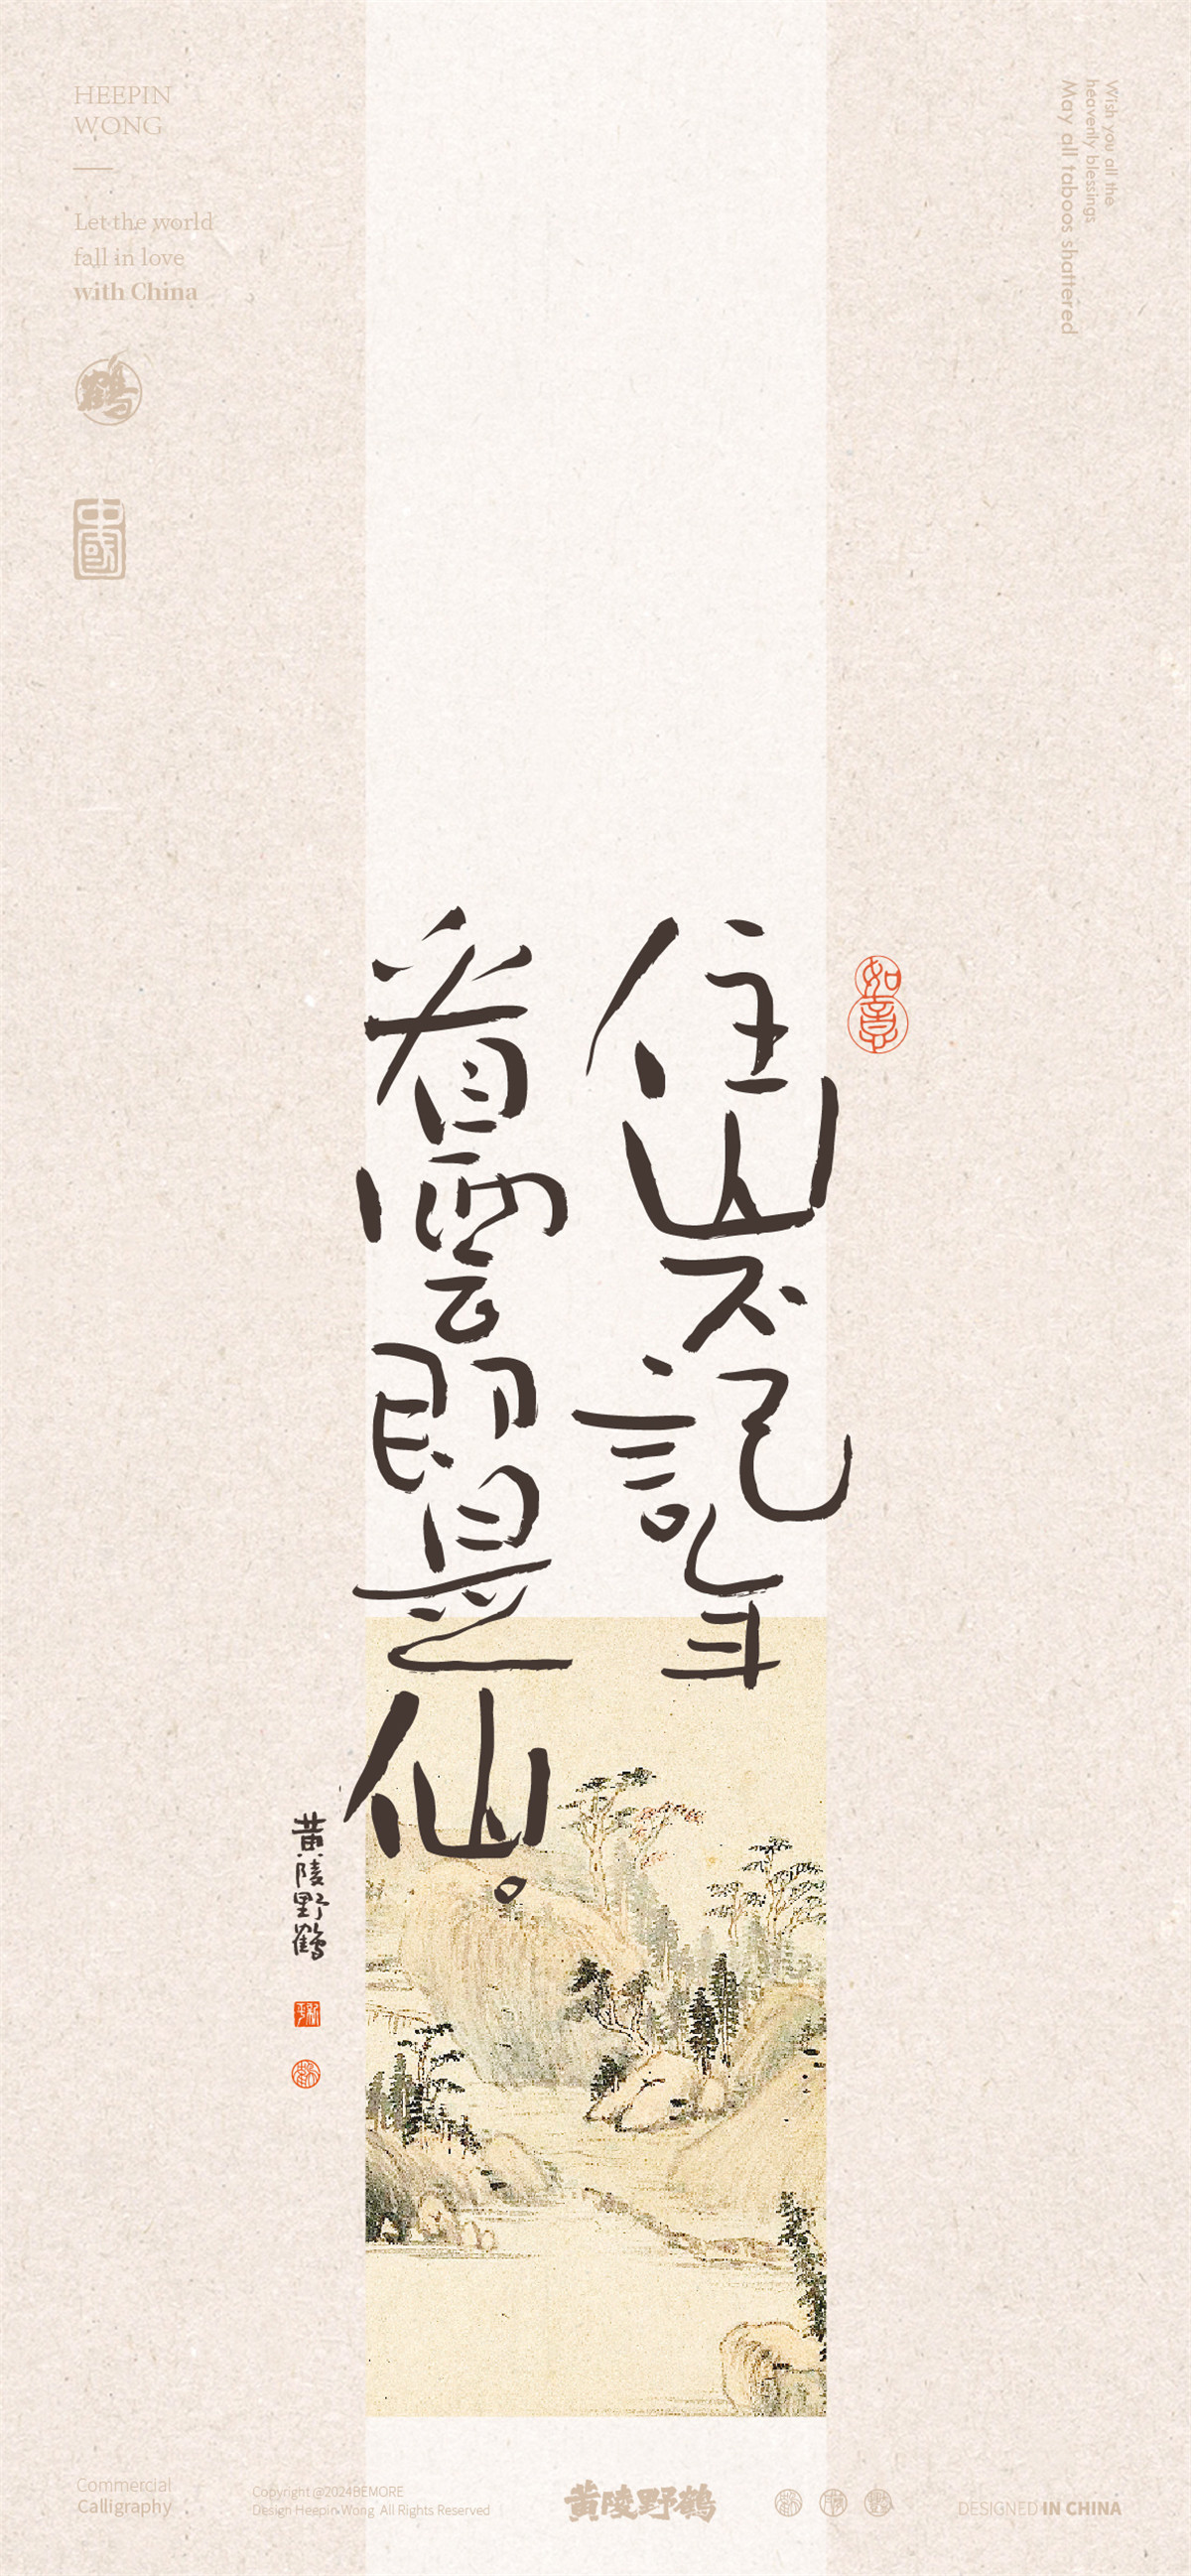 HEEPIN
WONG
Let the world
fall in love
with China
鶴
中國
Wish you all the
heavenly blessings
May all taboos shattered
如意
住山不記年
看雲即是仙。
黃陵野鶴
Commercial
Calligraphy
Copyright @2024BEMORE
Design Heepin Wong All Rights Reserved
黄陵野鶴
DESIGNED IN CHINA